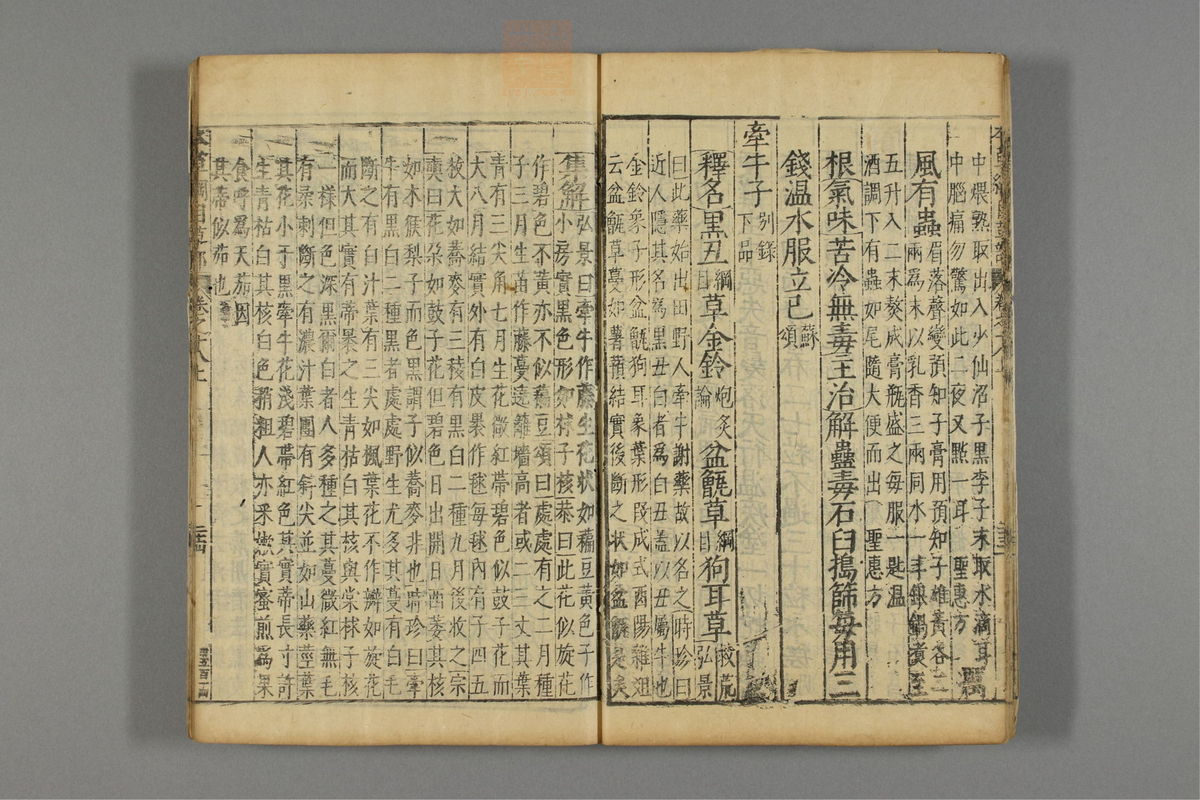 中煨熟取出入少仙沼子黑李子末取水滴耳
中腦痛勿驚如此二夜又㸃一耳 聖惠方
風有蟲眉落聲變預知子膏用預知子雄黃各二
兩爲末以乳香三兩同水一斗銀鍋煑至
五升入二末熬成膏瓶盛之每服一匙温
酒調下有蟲如尾隨大便而出 聖惠方
根氣味苦冷無毒主治解蠱毒石臼搗篩每用三
錢温水服立已蘇頌
牽牛子别錄下品
釋名黑丑綱目草金鈴炮炙論盆甑草綱目狗耳草救荒弘景
曰此藥始出田野人牽牛謝藥故以名之時珍曰
近人隱其名爲黑丑白者爲白丑蓋以丑屬牛也
金鈴象子形盆甑狗耳象葉形段成式酉陽雜俎
云盆甑草蔓如薯蕷結實後斷之狀如盆甑是矣
集解弘景曰牽牛作藤生花狀如藊豆黃色子作
小房實黑色形如梂子核恭曰此花似旋花
作碧色不黃亦不似藊豆頌曰處處有之二月種
子三月生苗作藤蔓遶籬墻高者或二三丈其葉
青有三尖角七月生花微紅帶碧色似鼓子花而
大八月結實外有白皮裹作毬每毬內有子四五
枚大如蕎麥有三稜有黑白二種九月後收之宗
奭曰花朶如鼓子花但碧色日出開日西萎其核
如木猴梨子而色黑謂子似蕎麥非也時珍曰牽
牛有黑白二種黑者處處野生尤多其蔓有白毛
斷之有白汁葉有三尖如楓葉花不作瓣如旋花
而大其實有蒂裹之生青枯白其核與棠梂子核
一樣但色深黑爾白者人多種之其蔓微紅無毛
有柔刺斷之有濃汁葉團有斜尖並如山藥莖葉
其花小于黑牽牛花淺碧帶紅色其實蒂長寸許
生青枯白其核白色稍粗人亦采嫩實蜜煎爲果
食呼爲天茄因
其蒂似茄也